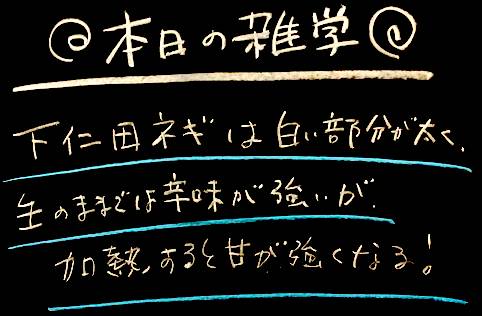 ◎本日の雑学◎
下仁田ネギは白い部分が太く、
生のままでは辛味が強いが、
加熱すると甘が強くなる!